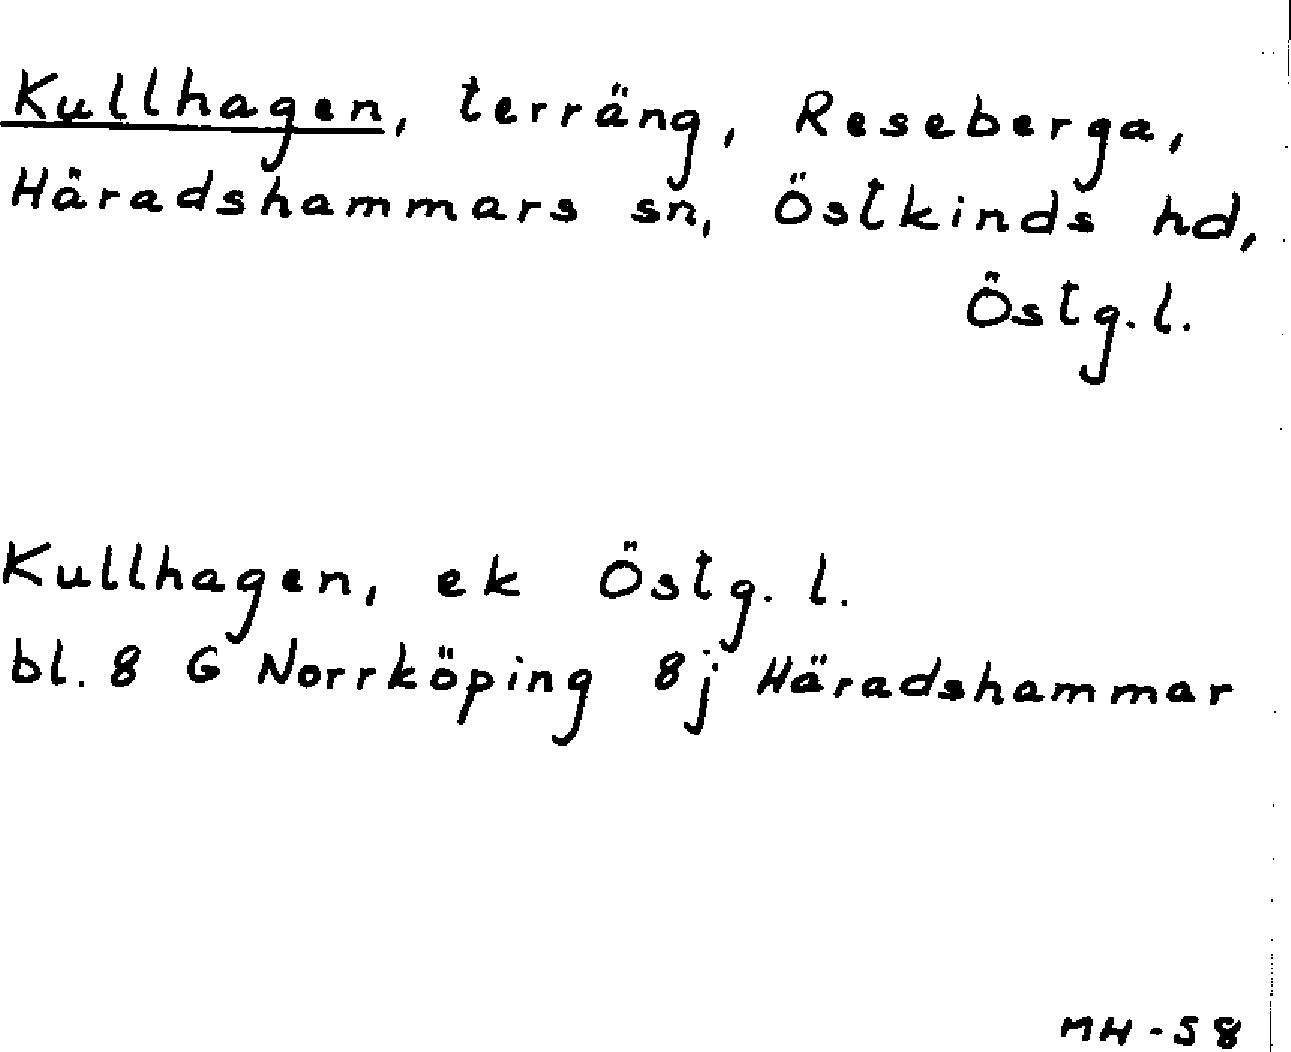 Kullhagen, terräng, Reseberga,
Häradshammars sn, Östkinds hd,
Östg.l.
Kullhagen, ek Östg.l.
bl. 8 G Norrköping 8j Häradshammar
MH-58